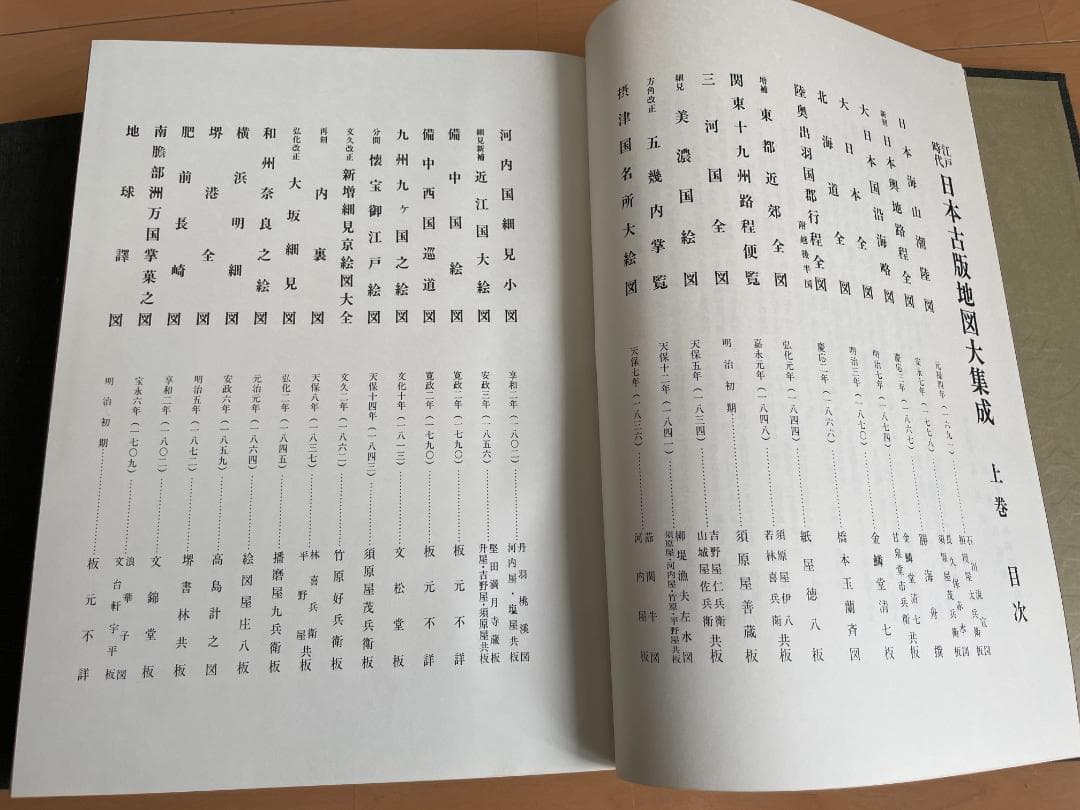 江戸時代 日本古版地図大集成 上巻 目次
日本海山潮陸図 元禄四年(一六九一) 石川流宣図 相模屋太兵衛板
新刻 日本輿地路程全図 安永七年(一七七八) 長久保赤水図 須原屋茂兵衛板
大日本国沿海略図 慶応三年(一八六七) 勝海舟撰
大日本全図 明治七年(一八七四) 金鱗堂清七 甘泉堂市兵衛共板
北海道全図 明治三年(一八七〇) 金鱗堂清七板
陸奥出羽国郡行程全図 附越後半国 慶応二年(一八六六) 橋本玉蘭斉図
増補 東都近郊全図 弘化元年(一八四四) 紙屋徳八板
関東十九州路程便覧 嘉永元年(一八四八) 須原屋伊八 若林喜兵衛共板
三河国全図 明治初期 須原屋善蔵板
細見 美濃国絵図 天保五年(一八三四) 吉野屋仁兵衛 山城屋佐兵衛共板
方角改正 五幾内掌覧 天保十二年(一八四一) 柳堤漁夫左水図 須原屋・河内屋・竹原・平野屋共板
摂津国名所大絵図 天保七年(一八三六) 茄関牛図 河内屋板
河内国細見小図 享和二年(一八〇二) 丹羽桃渓図 河内屋・塩屋共板
細見新補 近江国大絵図 安政三年(一八五六) 堅田満月寺蔵板 升屋・吉野屋・須原屋共板
備中国絵図 寛政二年(一七九〇) 板元不詳
備中西国巡道図 寛政二年(一七九〇) 板元不詳
九州九ヶ国之絵図 文化十年(一八一三) 文松堂板
分間 懐宝御江戸絵図 天保十四年(一八四三) 須原屋茂兵衛板
文久改正 新増細見京絵図大全 文久二年(一八六二) 竹原好兵衛板
再刻 内裏図 天保八年(一八三七) 林喜兵衛 平野屋共板
弘化改正 大坂細見図 弘化二年(一八四五) 播磨屋九兵衛板
和州奈良之絵図 元治元年(一八六四) 絵図屋庄八板
横浜明細図 安政六年(一八五九) 高島計之図
堺港全図 明治五年(一八七二) 堺書林共板
肥前長崎図 享和二年(一八〇二) 文錦堂板
南膽部洲万国掌菓之図 宝永六年(一七〇九) 浪華子図 文台軒宇平板
地球譯図 明治初期 板元不詳